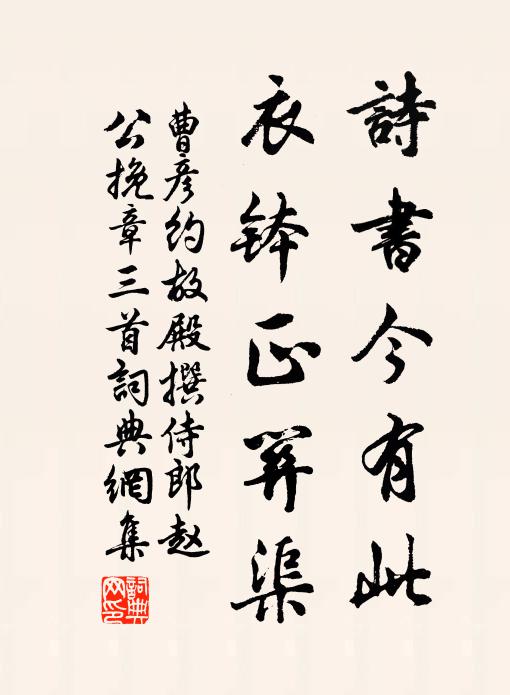 詩書今有此
衣鉢正渠
曹彦約故殿撰侍郎赵
公挽章三首詞典網集
詞典网印